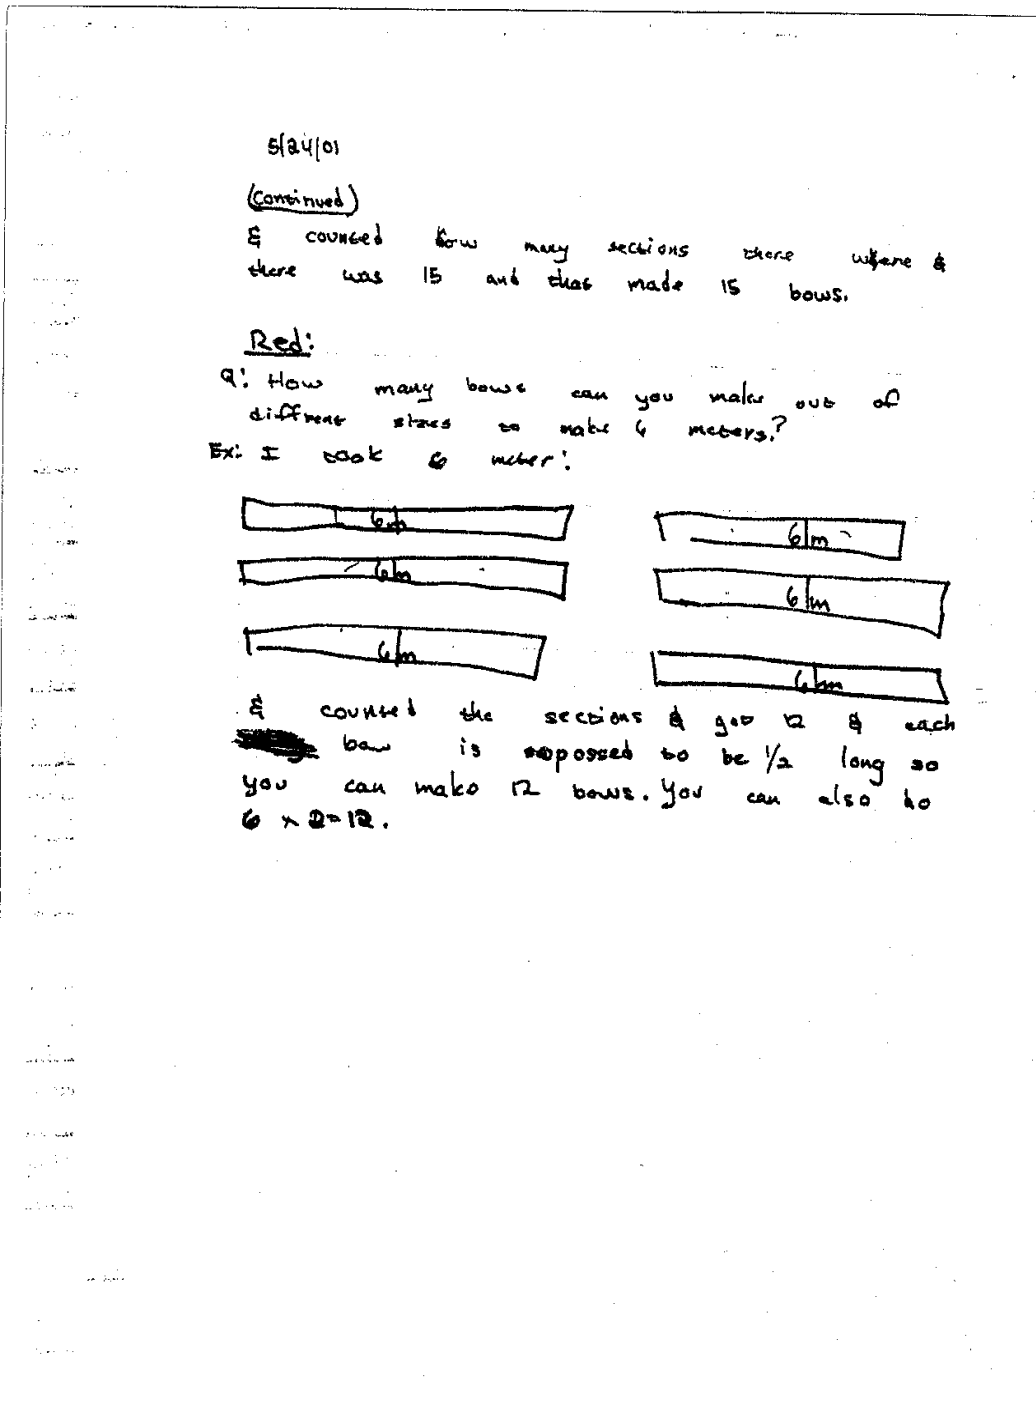 5/24/01
(Continued)
& counted how many sections there where &
there was 15 and that made 15 bows.
Red:
Q: How many bows can you make out of
diffrent sizes to make 6 meters?
Ex: I took 6 meter:
6m 6m
6m 6m
6m 6m
& counted the sections & got 12 & each
bow is soppossed to be 1/2 long so
you can make 12 bows. You can also do
6 x 2=12.